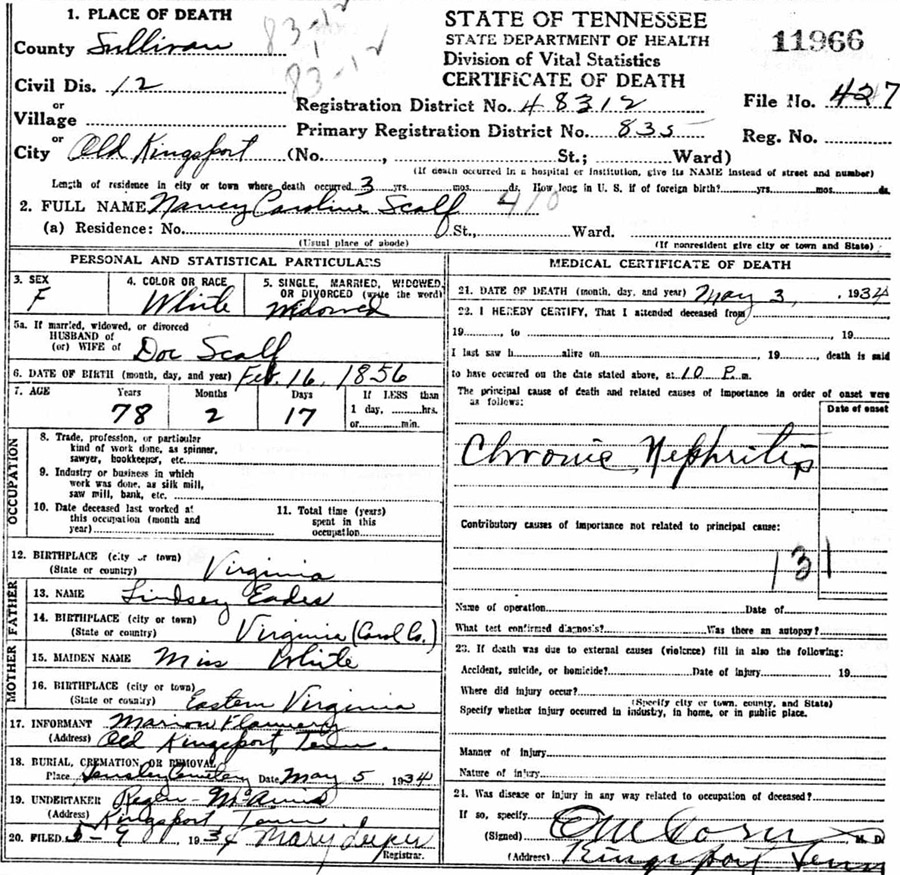 1. PLACE OF DEATH
County Sullivan
83-12
1
83-12
Civil Dis. 12
or
Village
or
City Old Kingsport (No. , St.; Ward)
STATE OF TENNESSEE
STATE DEPARTMENT OF HEALTH
Division of Vital Statistics
CERTIFICATE OF DEATH
11966
Registration District No. 48312
File No. 427
Primary Registration District No. 835
Reg. No.
(If death occurred in a hospital or institution, give its NAME instead of street and number)
Length of residence in city or town where death occurred 3 yrs. mos. ds. How long in U. S. if of foreign birth? yrs. mos. ds.
2. FULL NAME Nancy Caroline Scalf 410
(a) Residence: No. St., Ward.
(Usual place of abode) (If nonresident give city or town and State)
PERSONAL AND STATISTICAL PARTICULARS
3. SEX
F
4. COLOR OR RACE
White
5. SINGLE, MARRIED, WIDOWED, OR DIVORCED (write the word)
Widowed
5a. If married, widowed, or divorced
HUSBAND of
(or) WIFE of Doc Scalf
6. DATE OF BIRTH (month, day, and year) Feb. 16, 1856
7. AGE Years Months Days If LESS than
1 day, hrs.
or min.
78 2 17
OCCUPATION
8. Trade, profession, or particular
kind of work done, as spinner,
sawyer, bookkeeper, etc.
9. Industry or business in which
work was done, as silk mill,
saw mill, bank, etc.
10. Date deceased last worked at
this occupation (month and
year)
11. Total time (years)
spent in this
occupation
12. BIRTHPLACE (city or town)
(State or country) Virginia
FATHER
13. NAME Lindsey Eades
14. BIRTHPLACE (city or town)
(State or country) Virginia (Carol Co.)
MOTHER
15. MAIDEN NAME Miss White
16. BIRTHPLACE (city or town)
(State or country) Eastern Virginia
17. INFORMANT Marion Flannery
(Address) Old Kingsport, Tenn.
18. BURIAL, CREMATION, OR REMOVAL
Place Cemetery Date May 5 1934
19. UNDERTAKER
(Address) Kingsport Tenn
20. FILED 5-9 1934 Mary
Registrar.
MEDICAL CERTIFICATE OF DEATH
21. DATE OF DEATH (month, day, and year) May 3, 1934
22. I HEREBY CERTIFY, That I attended deceased from
19 , to , 19
I last saw h alive on , 19 , death is said
to have occurred on the date stated above, at 10 P. m.
The principal cause of death and related causes of importance in order of onset were
as follows:
Date of onset
Chronic Nephritis
Contributory causes of importance not related to principal cause:
131
Name of operation Date of
What test confirmed diagnosis? Was there an autopsy?
23. If death was due to external causes (violence) fill in also the following:
Accident, suicide, or homicide? Date of injury 19
Where did injury occur?
(Specify city or town, county, and State)
Specify whether injury occurred in industry, in home, or in public place.
Manner of injury
Nature of injury
24. Was disease or injury in any way related to occupation of deceased?
If so, specify
(Signed) M. D.
(Address) Kingsport Tenn